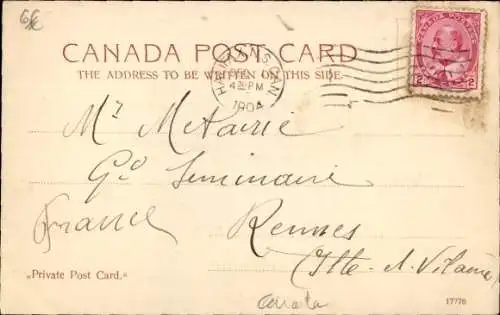 6€
CANADA POST CARD
THE ADDRESS TO BE WRITTEN ON THIS SIDE.
HALIFAX CAN
4 PM
1904
CANADA POSTAGE
2 2
Mr
Gd Seminaire
France
Rennes
(Ille-&-Vilaine)
„Private Post Card."
Canada
17776